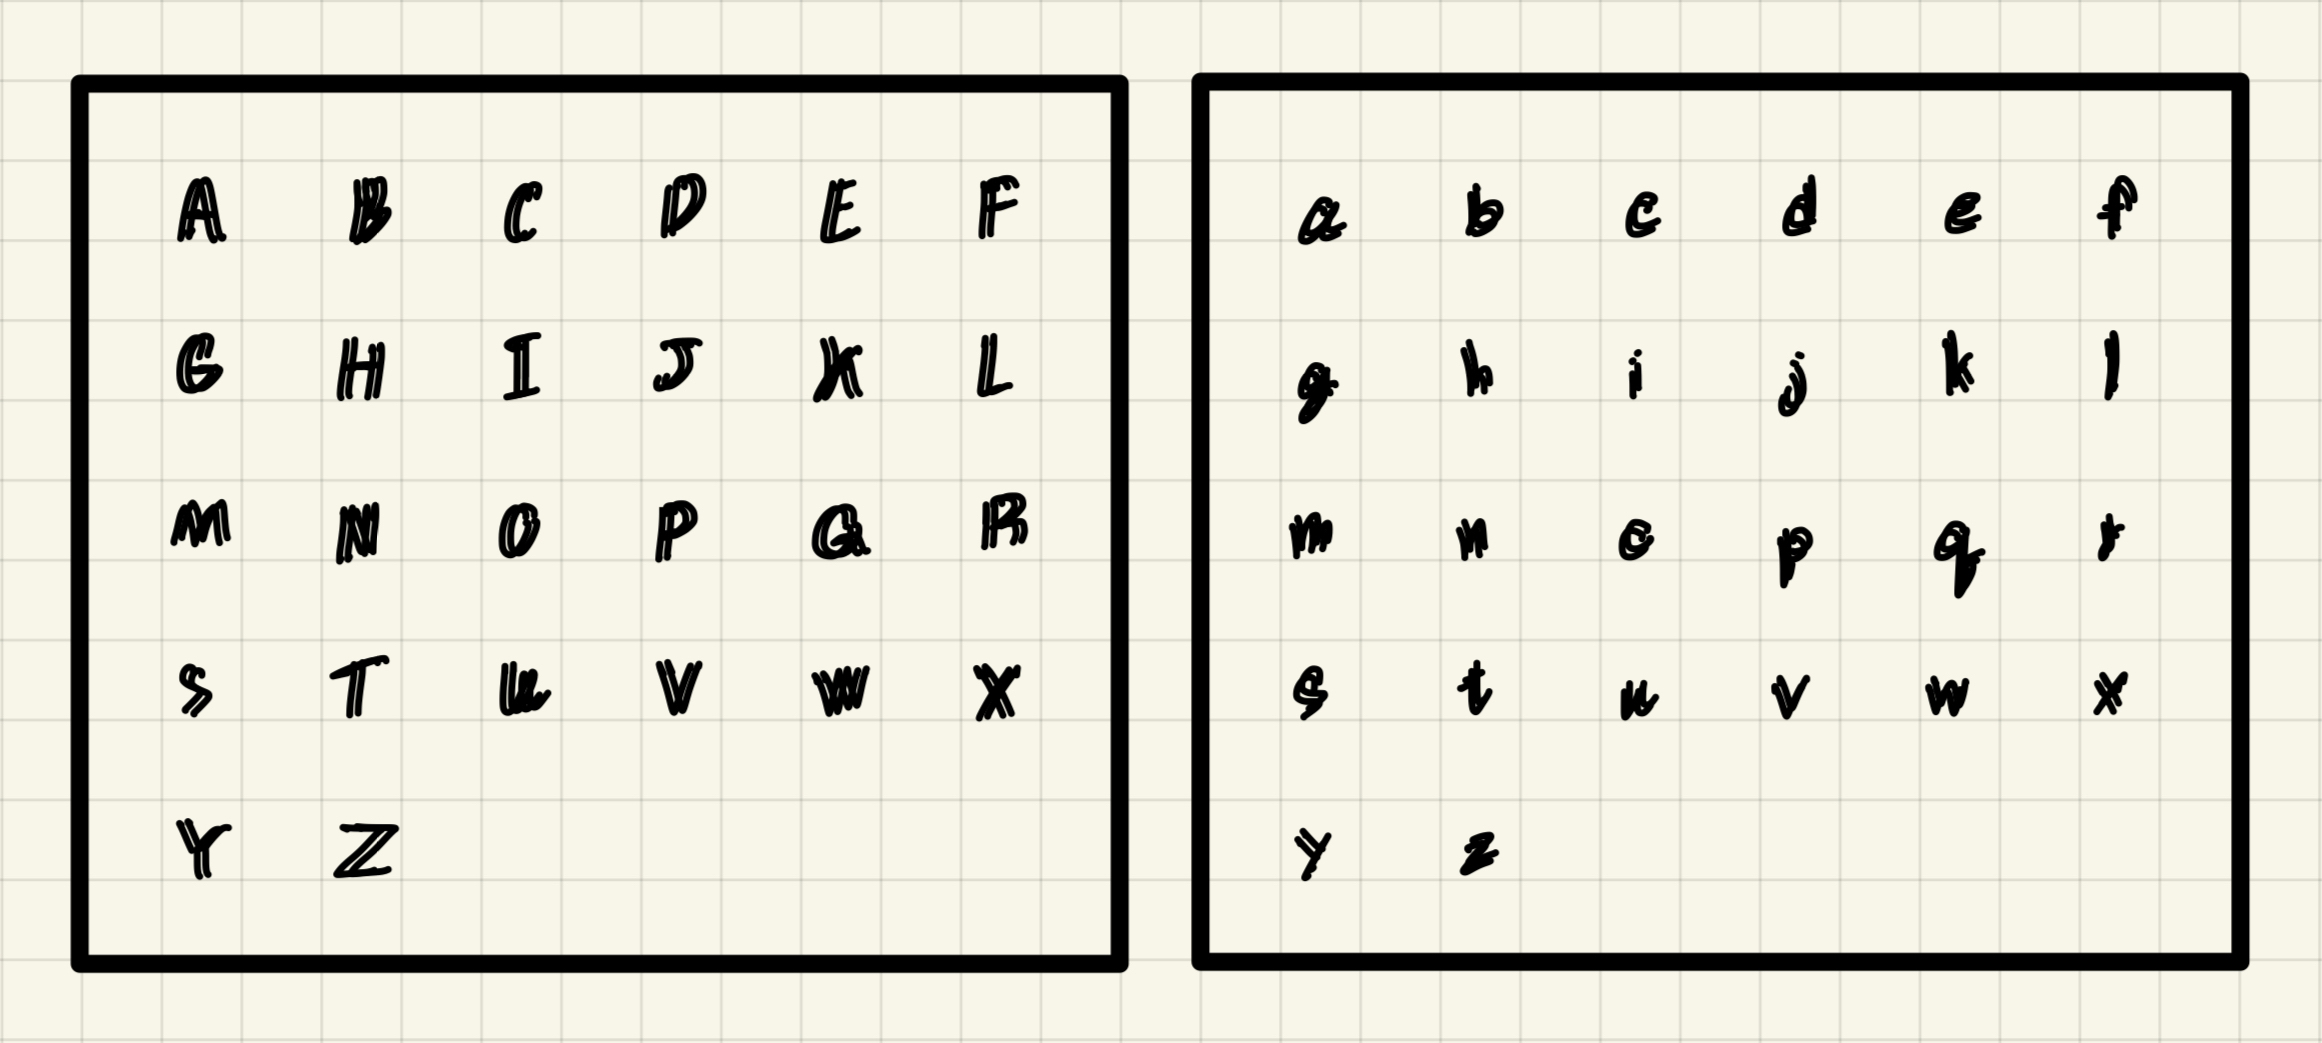 A B C D E F
G H I J K L
M N O P Q R
S T U V W X
Y Z
a b c d e f
g h i j k l
m n o p q r
s t u v w x
y z